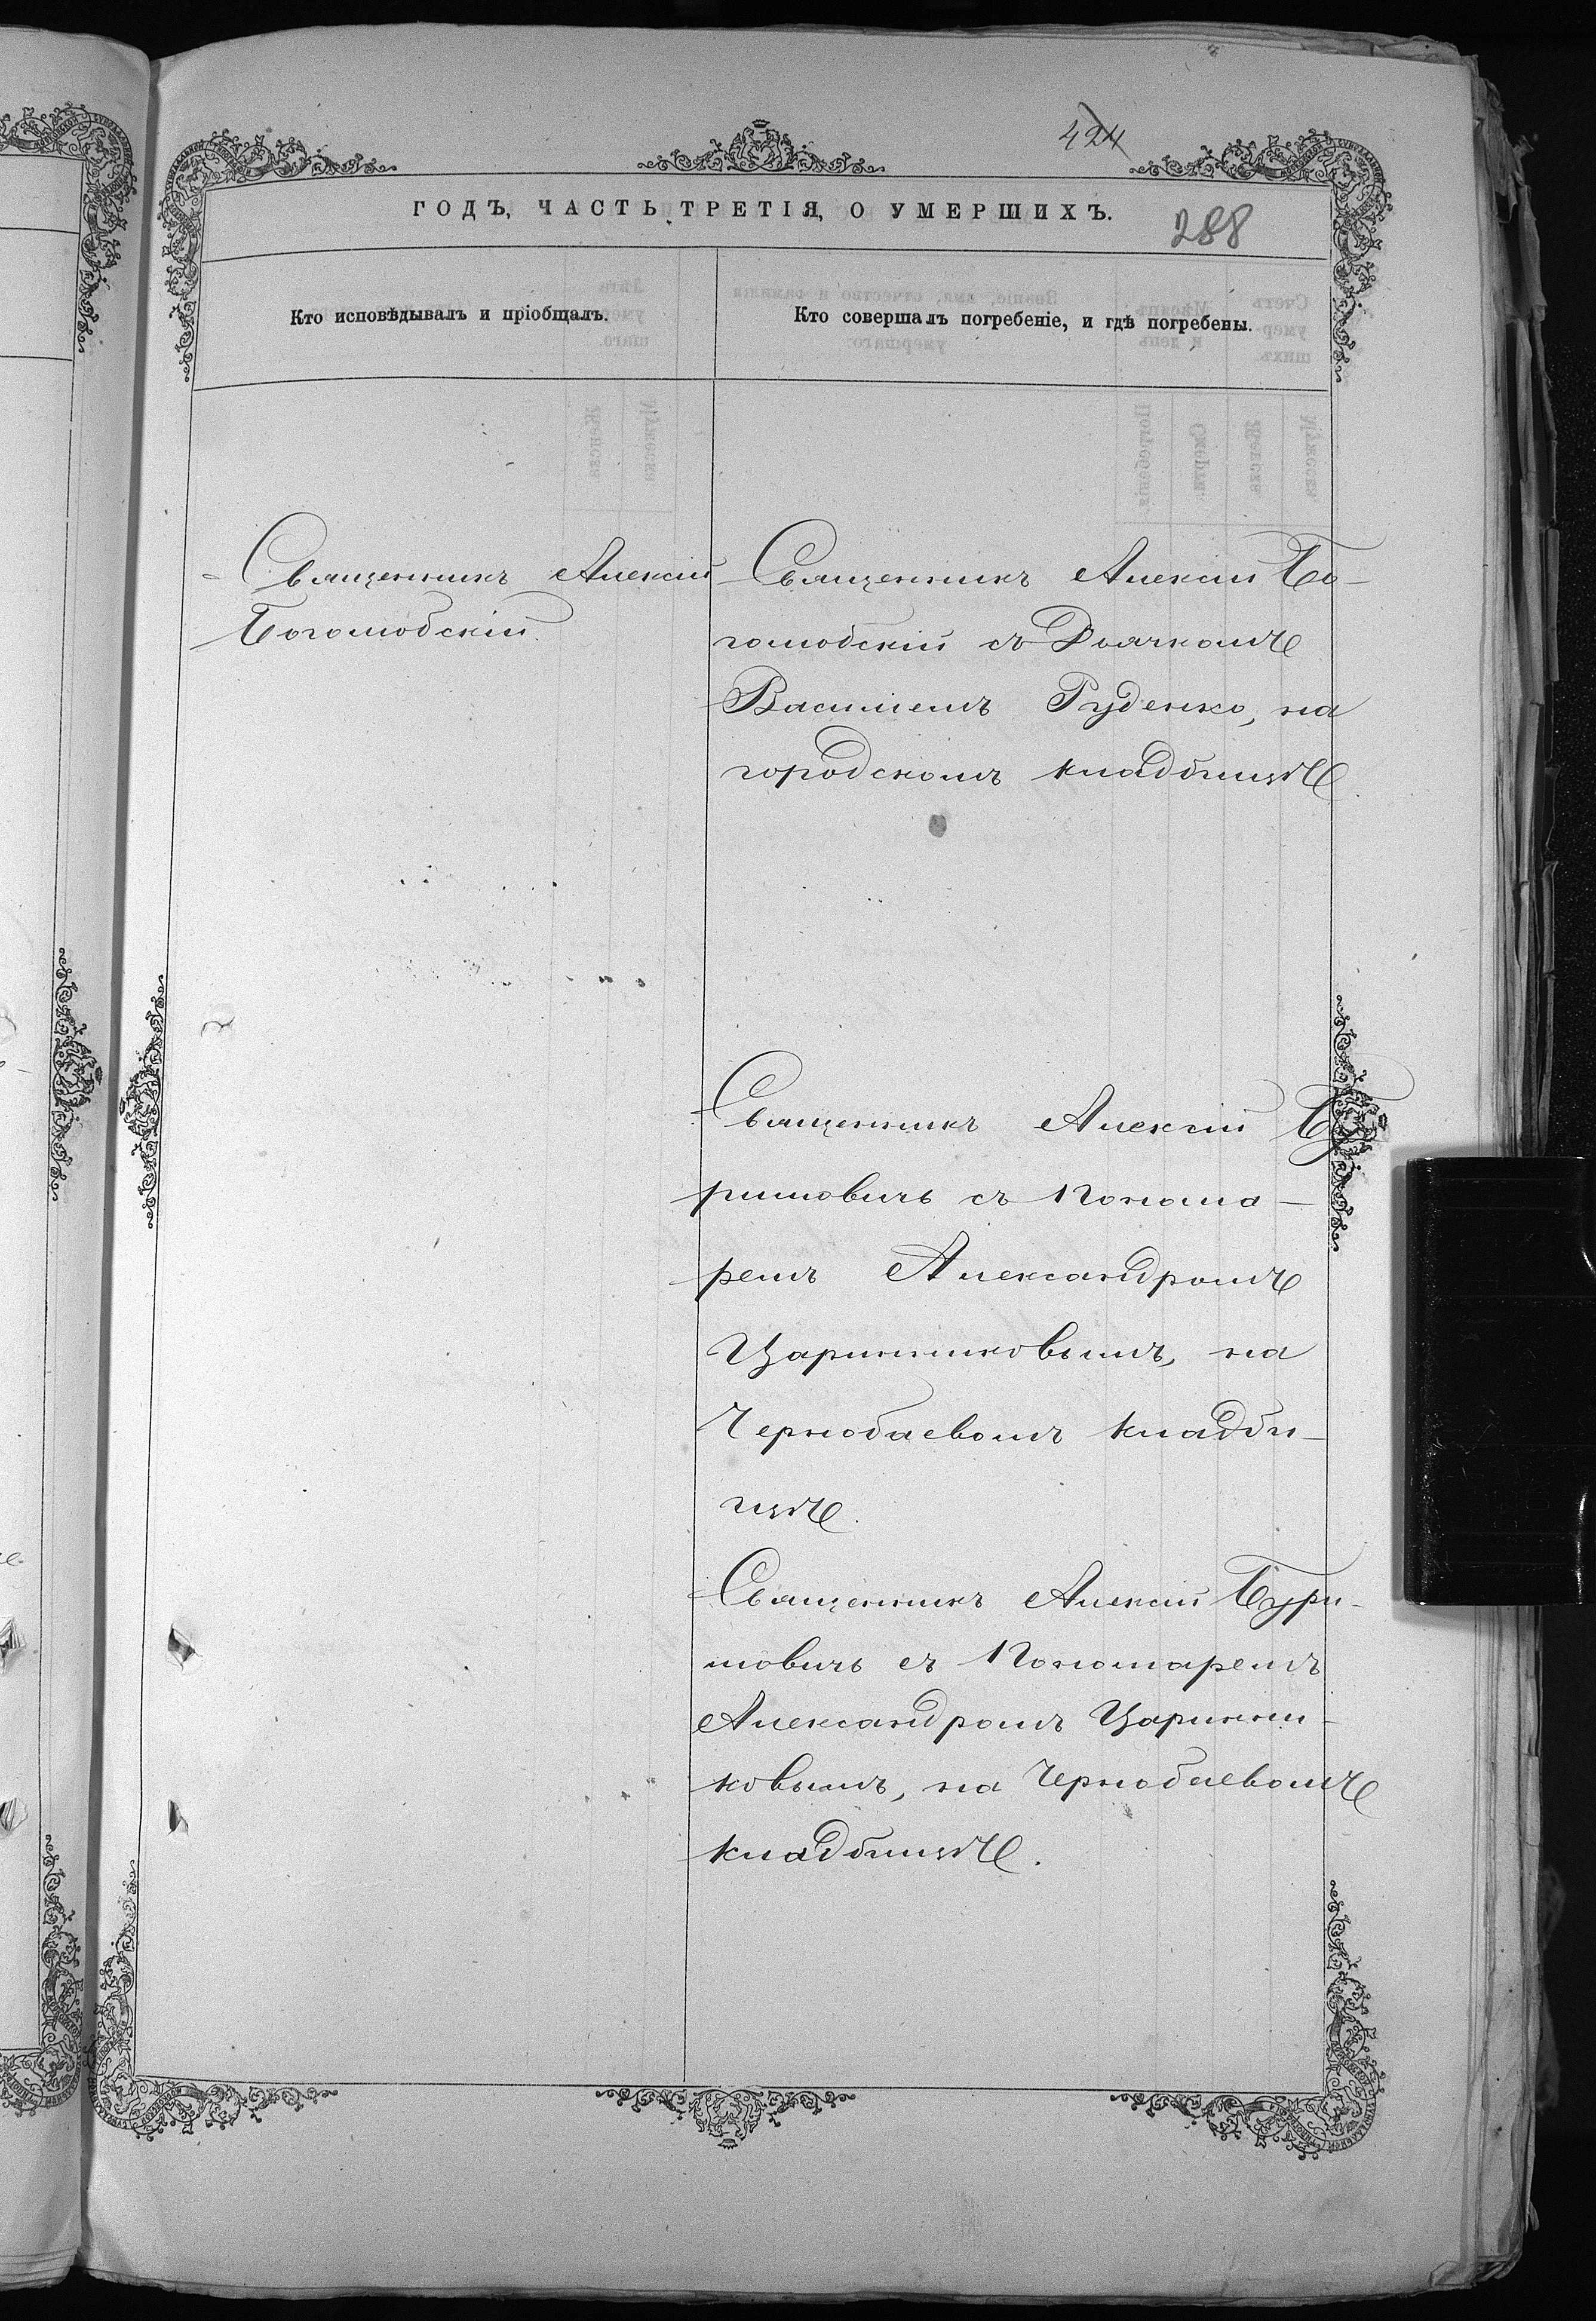 424
ГОДЪ, ЧАСТЬ ТРЕТІЯ, О УМЕРШИХЪ.
288
Кто исповѣдывалъ и пріобщалъ.
Кто совершалъ погребеніе, и гдѣ погребены.
Священникъ Алексій
Боголюбскій.
Священникъ Алексій Бо-
голюбскій съ Дьячкомъ
Василіемъ Руденко, на
городскомъ кладбищѣ
Священникъ Алексій Бу
римовичъ съ Понома-
ремъ Александромъ
Царинниковымъ, на
Чернобаевомъ кладби-
щѣ.
Священникъ Алексій Бури-
мовичъ съ Пономаремъ
Александромъ Царинни-
ковымъ, на Чернобаевомъ
кладбищѣ.